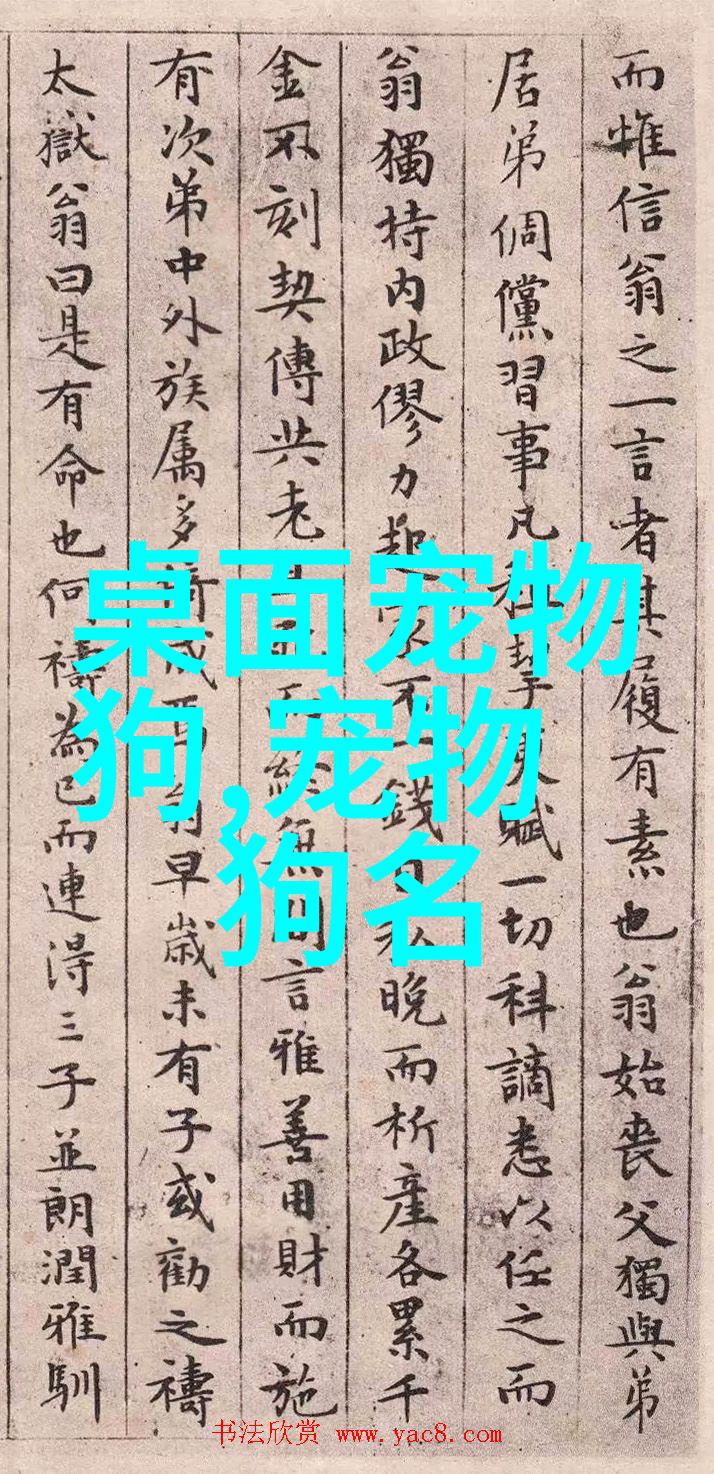 而惟信翁之一言者其履有素也翁始喪父獨與弟
居弟倜儻習事凡更賦一切科謫悉以任之而
翁獨持内政僇力起家不一錢自私晚而析産各累千
金不刻契傳共老終無間言雅善用財而施
有次弟中外族属多倚成焉翁早歲未有子或勸之禱
太嶽翁曰是有命也何禱為已而連得三子並朗潤雅馴
桌面宠物
狗,宠物
狗名
书法欣赏 www.yac8.com